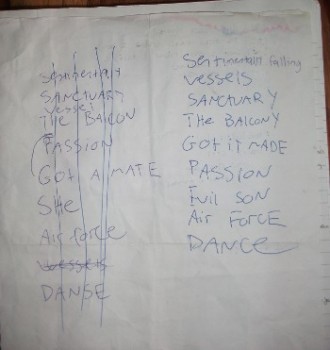 Sentimentally
SANCTUARY
vessel
THE BALCON
PASSION
GOT A MATE
SHE
Air force
vessels
DANSE
Sentimental falling
vessels
SANCTUARY
THE BALCONY
GOT iT MADE
PASSION
Evil SON
Air FORCE
DANCE